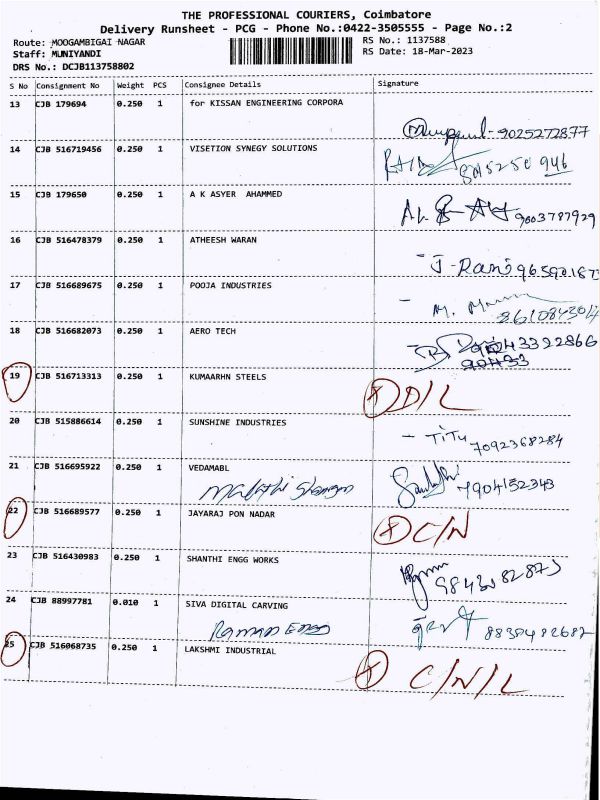 THE PROFESSIONAL COURIERS, Coimbatore
Delivery Runsheet - PCG - Phone No.:0422-3505555 - Page No.:2
Route: MOOGAMBIGAI NAGAR
RS No.: 1137588
Staff: MUNIYANDI
RS Date: 18-Mar-2023
DRS No.: DCJB113758802
S No Consignment No Weight PCS Consignee Details Signature
13 CJB 179694 0.250 1 for KISSAN ENGINEERING CORPORA
9025272877
14 CJB 516719456 0.250 1 VISETION SYNEGY SOLUTIONS
15 CJB 179650 0.250 1 A K ASYER AHAMMED
9003787929
16 CJB 516478379 0.250 1 ATHEESH WARAN
- J-Rani
17 CJB 516689675 0.250 1 POOJA INDUSTRIES
- M.
8610843014
18 CJB 516682073 0.250 1 AERO TECH
90433
19 CJB 516713313 0.250 1 KUMAARHN STEELS
X D/L
20 CJB 515886614 0.250 1 SUNSHINE INDUSTRIES
- TITU 7092368284
21 CJB 516695922 0.250 1 VEDAMABL
7904152343
22 CJB 516689577 0.250 1 JAYARAJ PON NADAR
X C/N
23 CJB 516430983 0.250 1 SHANTHI ENGG WORKS
24 CJB 88997781 0.010 1 SIVA DIGITAL CARVING
Raman Engg
8838482682
25 CJB 516068735 0.250 1 LAKSHMI INDUSTRIAL
X C/N/L